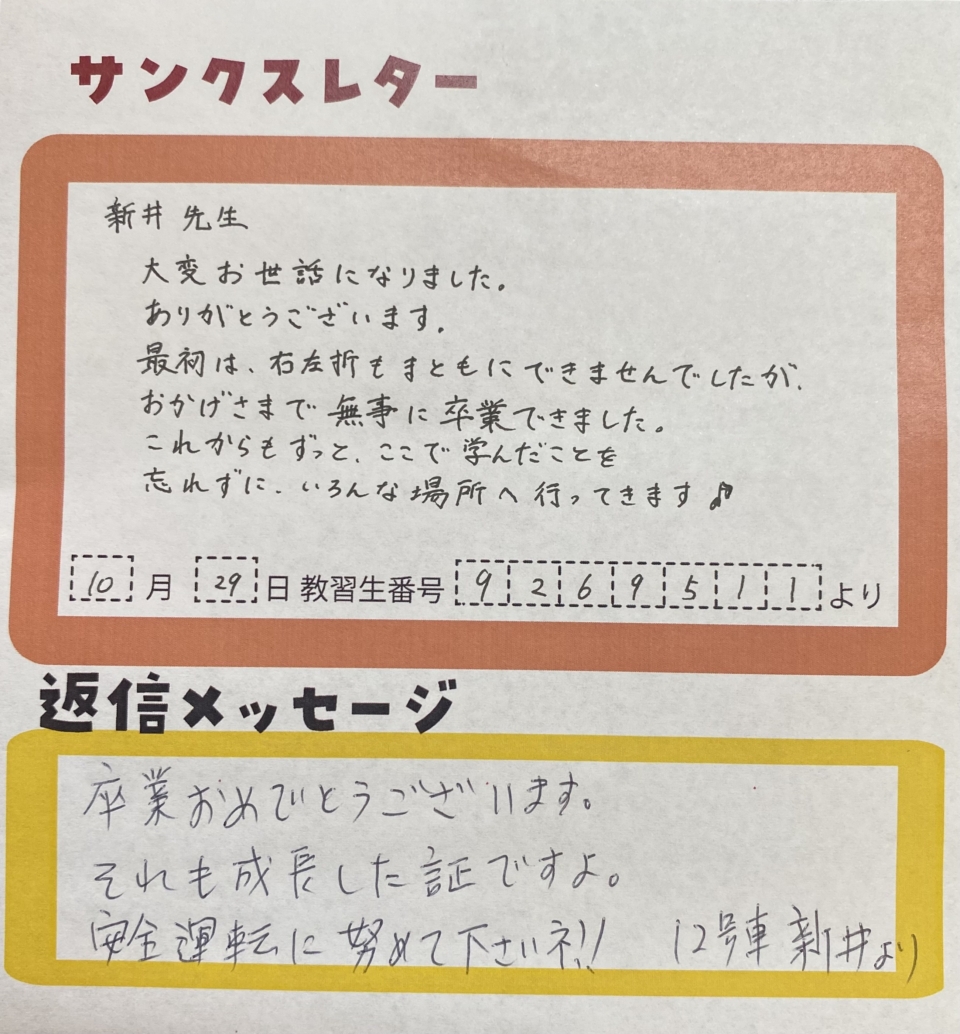 サンクスレター
新井 先生
大変お世話になりました。
ありがとうございます。
最初は、右左折もまともにできませんでしたが、
おかげさまで無事に卒業できました。
これからもずっと、ここで学んだことを
忘れずに、いろんな場所へ行ってきます♪
10月29日 教習生番号 9269511より
返信メッセージ
卒業おめでとうございます。
それも成長した証ですよ。
安全運転に努めて下さいネ!! 12号車 新井より